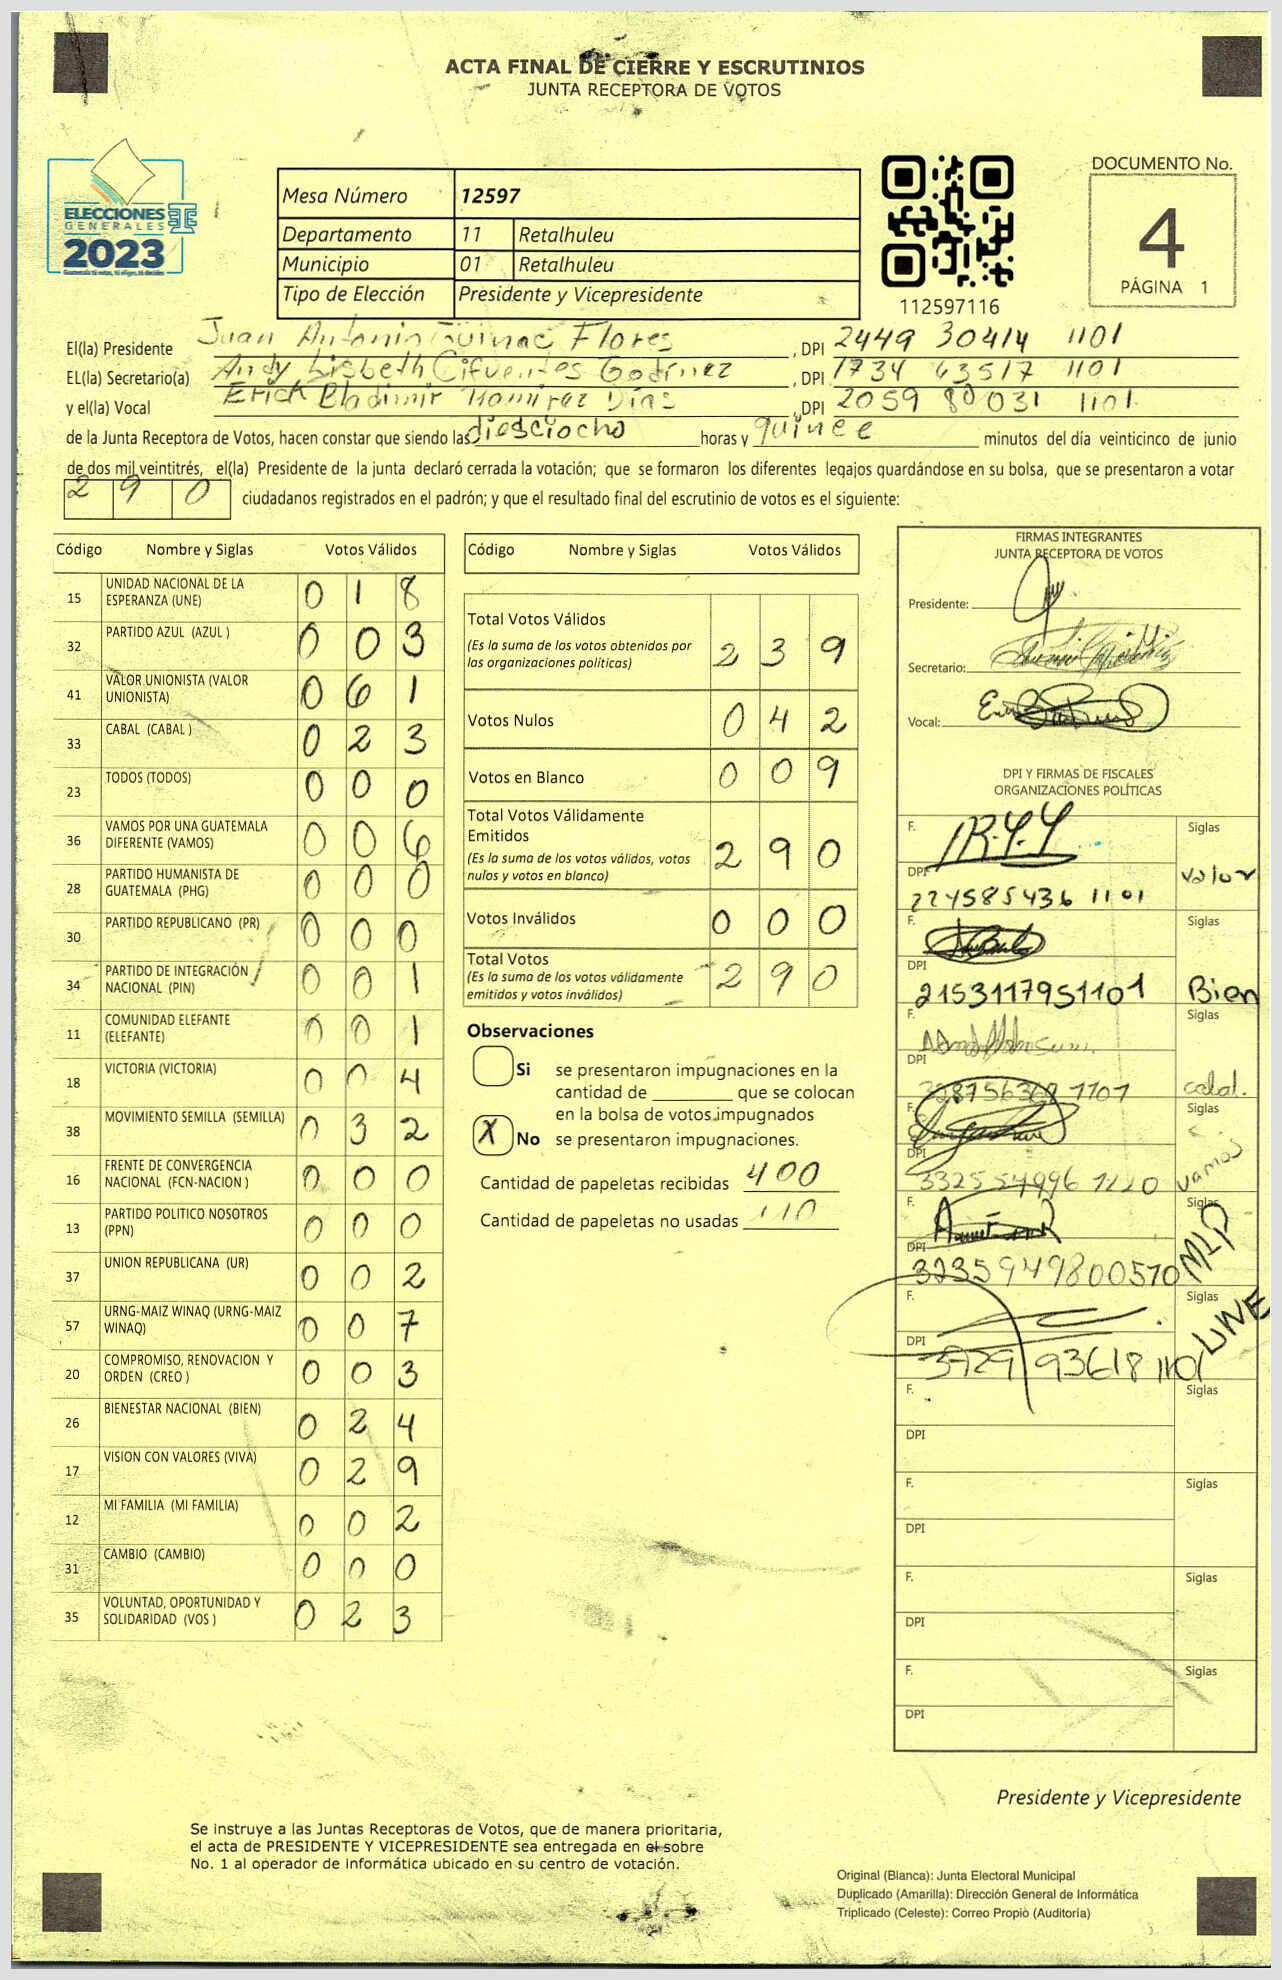 ACTA FINAL DE CIERRE Y ESCRUTINIOS
JUNTA RECEPTORA DE VOTOS
ELECCIONES
GENERALES
2023
Mesa Número 12597
Departamento 11 Retalhuleu
Municipio 01 Retalhuleu
Tipo de Elección Presidente y Vicepresidente
112597116
DOCUMENTO No.
4
PÁGINA 1
El(la) Presidente Juan Antonio Güinac Flores , DPI 2449 30414 1101
EL(la) Secretario(a) Andy Lisbeth Cifuentes Godínez , DPI 1734 63517 1101
y el(la) Vocal Erick Bladimir Ramirez Días , DPI 2059 80031 1101
de la Junta Receptora de Votos, hacen constar que siendo las diesciocho horas y quince minutos del día veinticinco de junio
de dos mil veintitrés, el(la) Presidente de la junta declaró cerrada la votación; que se formaron los diferentes legajos guardándose en su bolsa, que se presentaron a votar
290 ciudadanos registrados en el padrón; y que el resultado final del escrutinio de votos es el siguiente:
Código Nombre y Siglas Votos Válidos
15 UNIDAD NACIONAL DE LA ESPERANZA (UNE) 018
32 PARTIDO AZUL (AZUL ) 003
41 VALOR UNIONISTA (VALOR UNIONISTA) 061
33 CABAL (CABAL ) 023
23 TODOS (TODOS) 000
36 VAMOS POR UNA GUATEMALA DIFERENTE (VAMOS) 006
28 PARTIDO HUMANISTA DE GUATEMALA (PHG) 000
30 PARTIDO REPUBLICANO (PR) 000
34 PARTIDO DE INTEGRACIÓN NACIONAL (PIN) 001
11 COMUNIDAD ELEFANTE (ELEFANTE) 001
18 VICTORIA (VICTORIA) 004
38 MOVIMIENTO SEMILLA (SEMILLA) 032
16 FRENTE DE CONVERGENCIA NACIONAL (FCN-NACION ) 000
13 PARTIDO POLITICO NOSOTROS (PPN) 000
37 UNION REPUBLICANA (UR) 002
57 URNG-MAIZ WINAQ (URNG-MAIZ WINAQ) 007
20 COMPROMISO, RENOVACION Y ORDEN (CREO ) 003
26 BIENESTAR NACIONAL (BIEN) 024
17 VISION CON VALORES (VIVA) 029
12 MI FAMILIA (MI FAMILIA) 002
31 CAMBIO (CAMBIO) 000
35 VOLUNTAD, OPORTUNIDAD Y SOLIDARIDAD (VOS ) 023
Código Nombre y Siglas Votos Válidos
Total Votos Válidos 239
(Es la suma de los votos obtenidos por
las organizaciones políticas)
Votos Nulos 042
Votos en Blanco 009
Total Votos Válidamente
Emitidos 290
(Es la suma de los votos válidos, votos
nulos y votos en blanco)
Votos Inválidos 000
Total Votos 290
(Es la suma de los votos válidamente
emitidos y votos inválidos)
Observaciones
Si se presentaron impugnaciones en la
cantidad de que se colocan
en la bolsa de votos impugnados
X No se presentaron impugnaciones.
Cantidad de papeletas recibidas 400
Cantidad de papeletas no usadas 110
FIRMAS INTEGRANTES
JUNTA RECEPTORA DE VOTOS
Presidente:
Secretario:
Vocal:
DPI Y FIRMAS DE FISCALES
ORGANIZACIONES POLÍTICAS
F. Siglas
DPI 224585436 1101 valor
F. Siglas
DPI 2153117951101 Bien
F. Siglas
DPI cabal.
F. Siglas
DPI 3325 54996 1110 vamos
F. Siglas
DPI 3235949800510 MLP
F. Siglas
DPI 3729 93618 1101 UNE
F. Siglas
DPI
F. Siglas
DPI
F. Siglas
DPI
F. Siglas
DPI
Presidente y Vicepresidente
Se instruye a las Juntas Receptoras de Votos, que de manera prioritaria,
el acta de PRESIDENTE Y VICEPRESIDENTE sea entregada en el sobre
No. 1 al operador de informática ubicado en su centro de votación.
Original (Blanca): Junta Electoral Municipal
Duplicado (Amarilla): Dirección General de Informática
Triplicado (Celeste): Correo Propio (Auditoría)